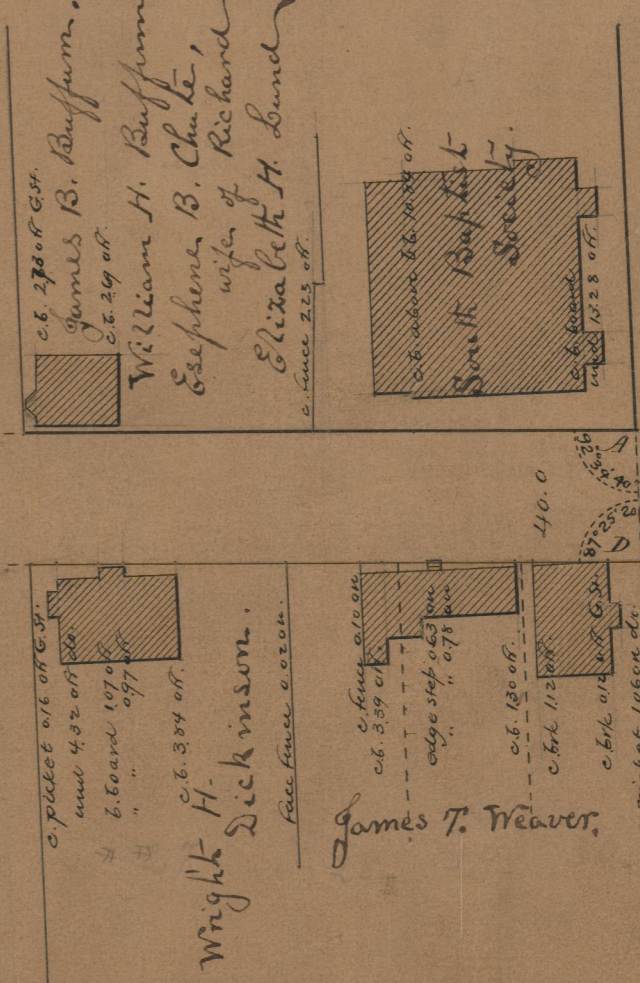 c.b. 2.70 off G.St.
James B. Buffum.
c.b. 2.69 off.
William H. Buffum
Esephene B. Chute,
wife of Richard
Elizabeth H. Lund
c. fence 2.23 off.
c.b. above b.b. 10.84 off.
South Baptist
Society.
c.b. board
und 13.28 off.
40.0
A
D
87° 25'
c. picket 0.16 off G.St.
und 4.32 off do.
b. board 1.07 off
" " 0.97 off
c.b. 3.84 off.
Wright H.
Dickinson.
face fence 0.02 on.
c. fence 0.10 on
c.b. 3.39 off
edge step 0.63 on
" " 0.78 on
c.b. 1.30 off.
c. brk 1.12 off
c. brk 0.12 off G.St.
James T. Weaver.